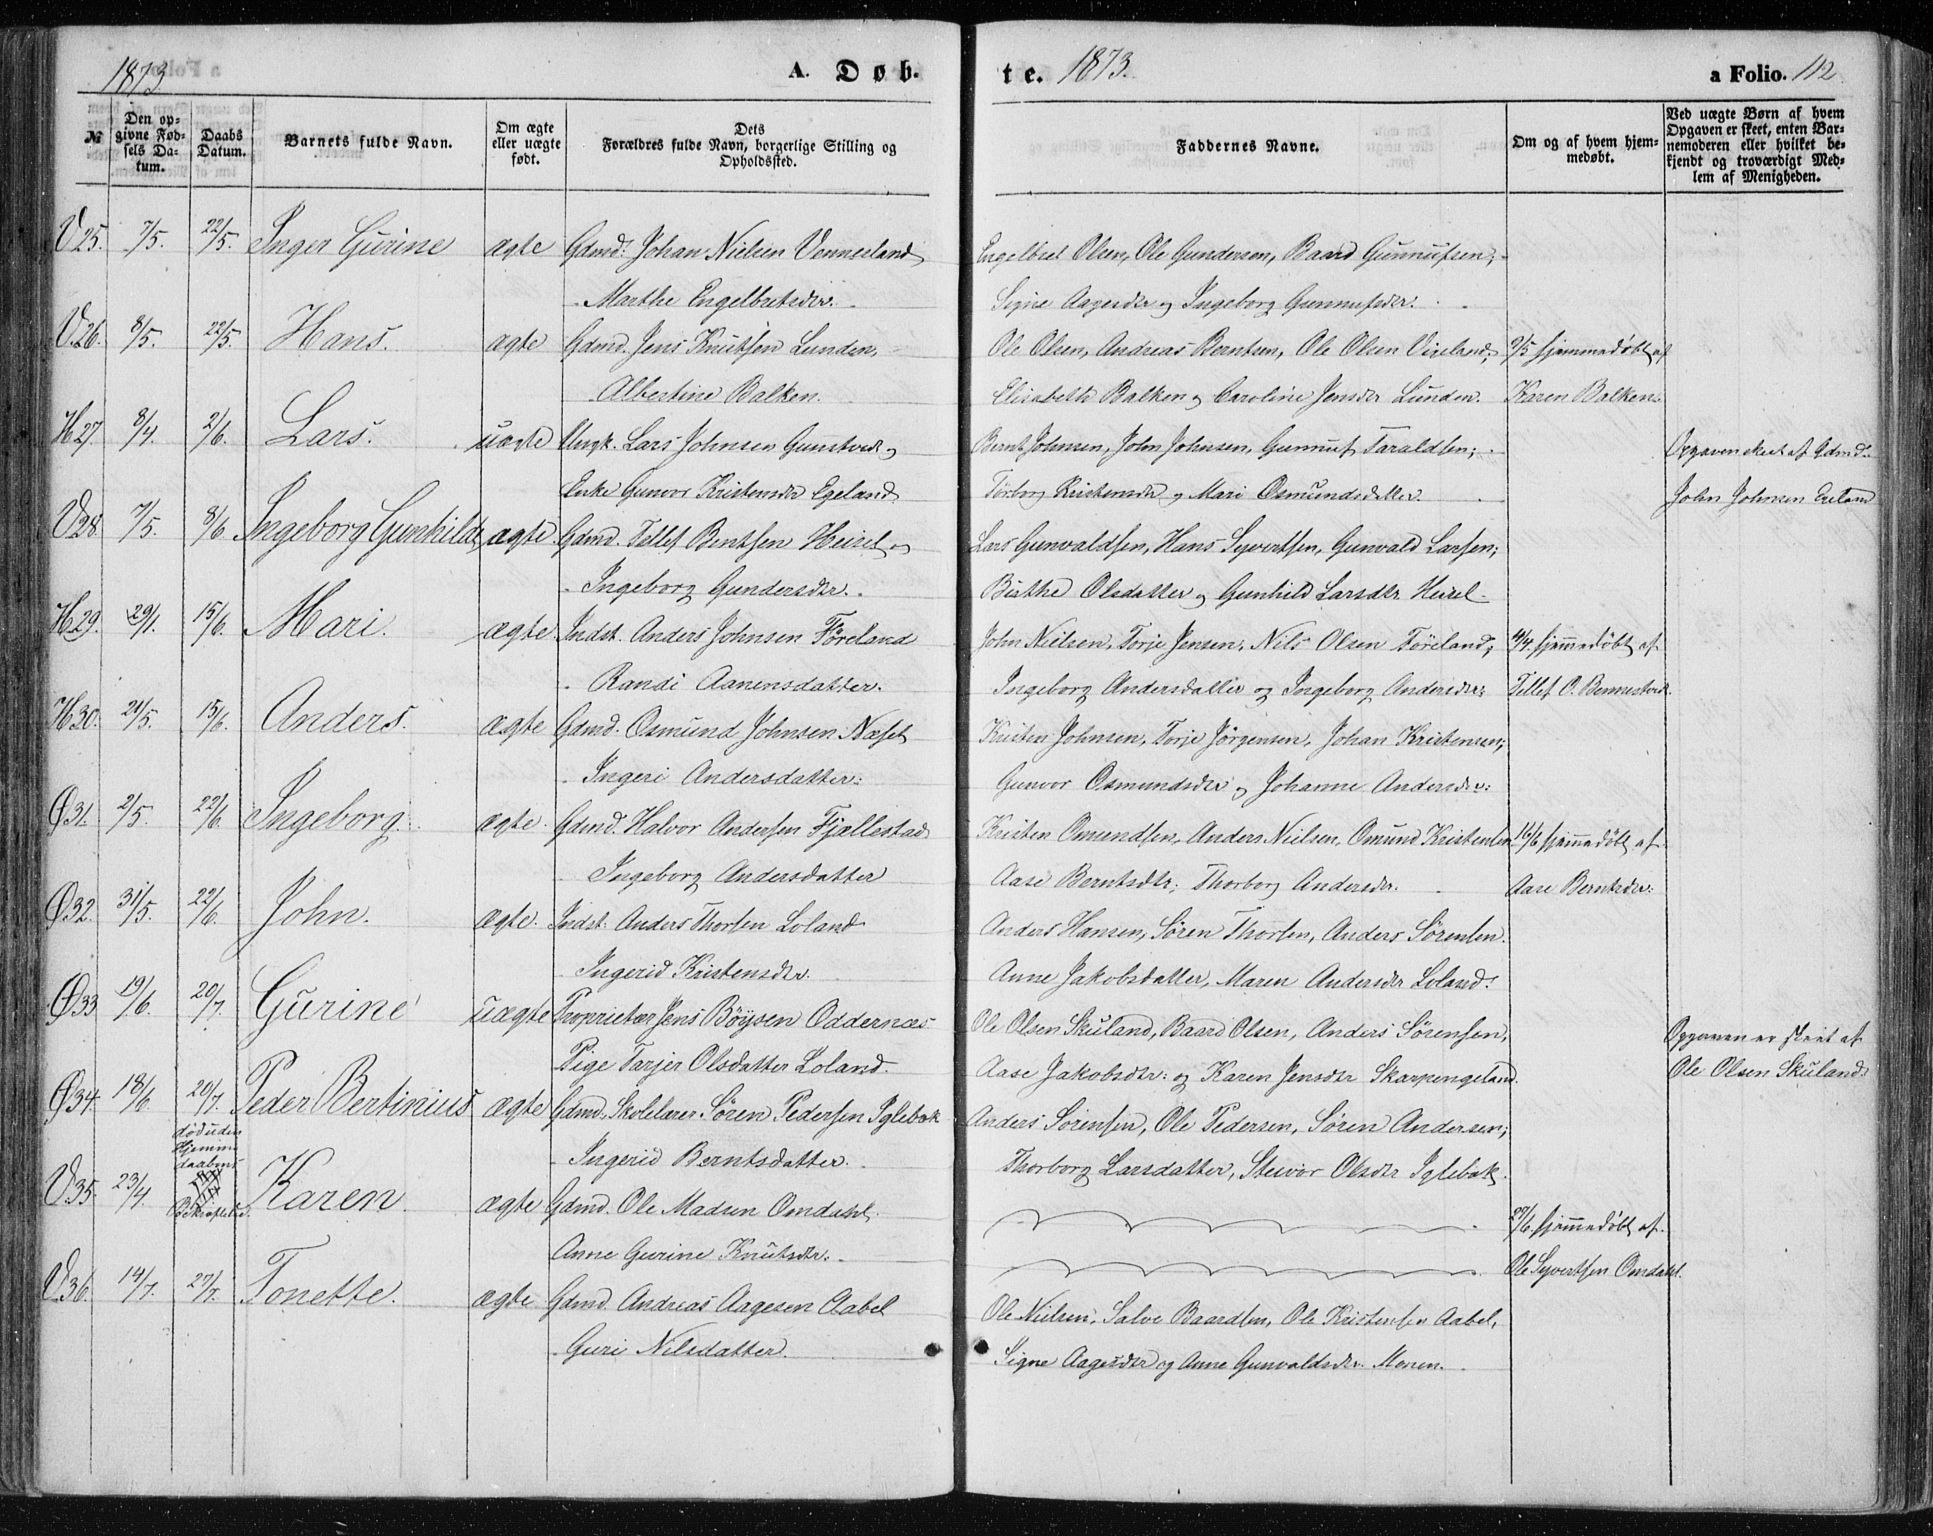 1873
A. Døb.
№
Den opgivne Fødsels Datum.
Daabs Datum.
Barnets fulde Navn.
Om ægte eller uægte født.
Dets Forældres fulde Navn, borgerlige Stilling og Opholdssted.
V 25. 7/5. 22/5. Inger Gurine ægte Gdmd. Johan Nielsen Vennesland
Marthe Engelbretsdtr.
V 26. 8/5. 22/5. Hans. ægte Gdmd. Jens Knutsen Lunden,
Albertine Balken.
H 27. 8/4. 2/6. Lars. uægte Ungk. Lars Johnsen Gumstved og
Enke Gunvor Kristensdtr Egeland
V 28. 7/5. 8/6. Ingeborg Gunhilde ægte Gdmd. Tellef Bentsen Heisel og
Ingeborg Gundersdtr.
H 29. 29/1. 15/6. Mari. ægte Indst. Anders Johnsen Föreland
Randi Aanensdatter.
H 30. 21/5. 15/6. Anders. ægte Gdmd. Osmund Johnsen Næset
Ingeri Andersdatter.
Ø 31. 2/5. 22/6. Ingeborg. ægte. Gdmd. Halvor Andersen Fjællestad
Ingeborg Andersdatter
Ø 32. 31/5. 22/6. John. ægte. Indst. Anders Thorsen Loland
Ingerid Kristensdtr.
Ø 33 19/6. 20/7. Gurine uægte Proprietær Jens Böysen Oddernæs
Pige Tarjer Olsdatter Loland.
Ø 34. 18/6. 20/7. Peder Bertinius ægte Gdmd. Skolelærer Sören Pedersen Iglebæk
Ingerid Berntsdatter.
død uden Hjemmedaabens Bekræftelse.
V 35. 23/4. Karen. ægte Gdmd. Ole Madsen Omdahl.
Anne Gurine Knutsdtr.
V 36. 14/7. 27/7. Tonette. ægte Gdmd. Andreas Aagesen Aabel
Guri Nilsdatter.
te. 1873.
a Folio. 112
Faddernes Navne.
Om og af hvem hjemmedøbt.
Ved uægte Børn af hvem Opgaven er skeet, enten Barnemoderen eller hvilket bekjendt og troværdigt Medlem af Menigheden.
Engelbret Olsen, Ole Gundersen, Baard Gunnufsen,
Signe Aagesdtr og Ingeborg Gunnufsdtr.
Ole Olsen, Andreas Berntsen, Ole Olsen Vigeland, 9/5 hjemmedøbt af
Elisabeth Balken og Caroline Jensdtr Lunden. Karen Balken.
Bernt Johnsen, John Johnsen, Gunnuf Taraldsen; Opgaven skeet af Gdmd.
Torborg Kristensdtr og Mari Osmundsdatter. John Johnsen Egeland
Lars Gunvaldsen, Hans Syvertsen, Gunvald Larsen;
Birthe Olsdatter og Gunhild Larsdtr Heisel
John Nielsen, Torje Jensen, Nils Olsen Föreland, hjemmedøbt af
Ingeborg Andersdatter og Ingeborg Andersdtr. Tellef O. Bennestved.
Kristen Johnsen, Torje Jörgensen, Johan Kristensen,
Gunvor Osmundsdtr og Johanne Andersdtr.
Kristen Omundsen, Anders Nielsen, Omund Kristensen 16/6 hjemmedøbt af
Aase Berntsdtr, Thorborg Andersdtr. Aase Berntsdtr.
Anders Hansen, Sören Thorsen, Anders Sörensen.
Anne Jakobsdatter, Maren Andersdtr Loland.
Ole Olsen Skuland, Baard Olsen, Anders Sörensen, Opgaven er skeet af
Aase Jakobsdtr. og Karen Jensdtr Skarpengeland. Ole Olsen Skuland.
Anders Sörensen, Ole Pedersen, Sören Andersen;
Thorborg Larsdatter, Stevor Olsdtr Iglebæk.
27/6 hjemmedøbt af
Ole Syvertsen Omdahl.
Ole Nielsen, Salve Baardsen, Ole Kristensen Aabel,
Signe Aagesdtr og Anne Gunvaldsdtr. Monen.